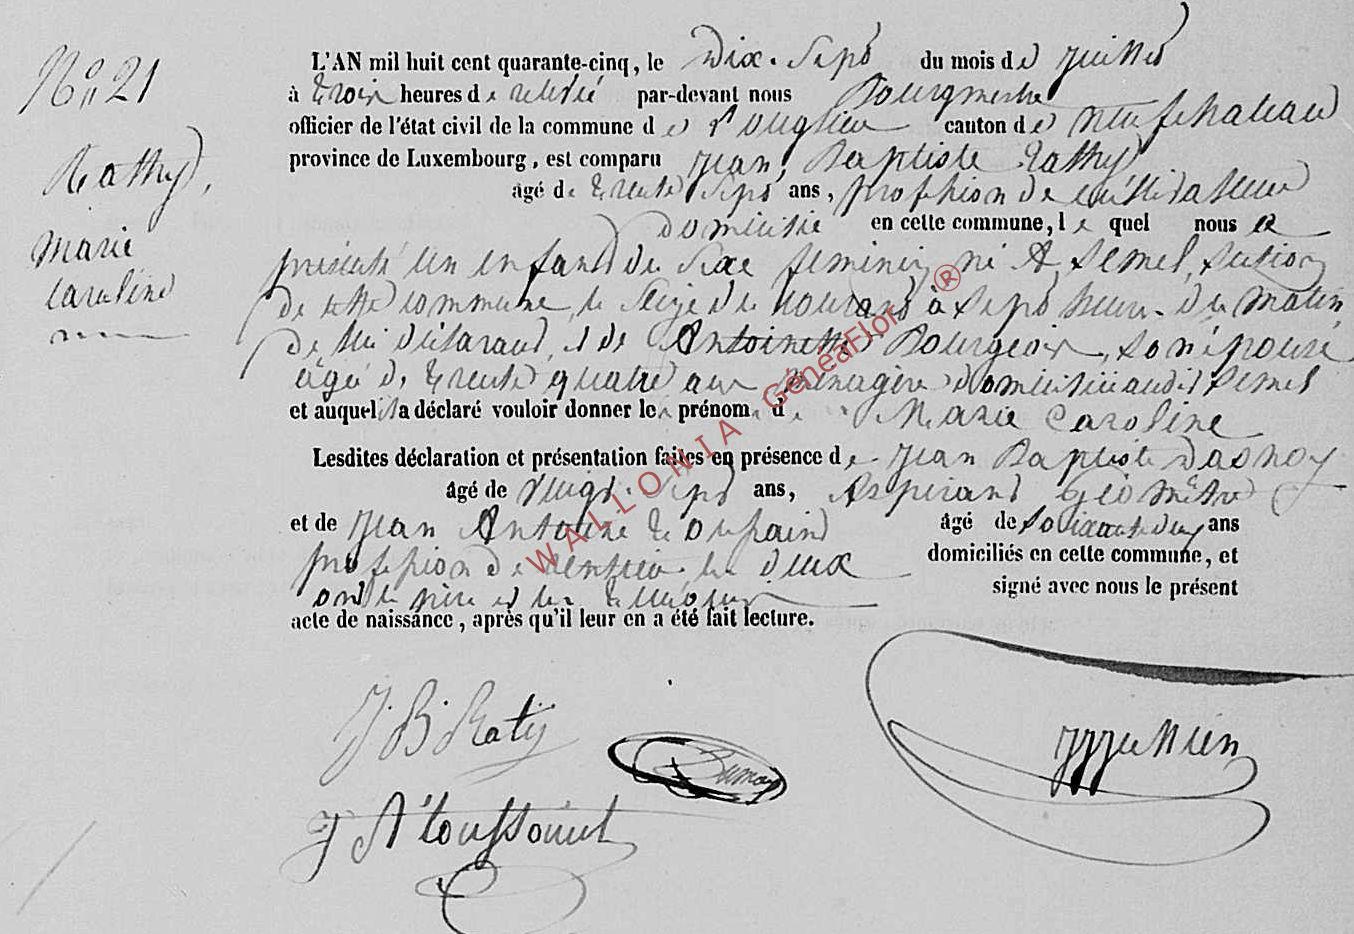 N° 21
Rathy,
Marie
Caroline
L'AN mil huit cent quarante-cinq, le Dix-Sept du mois de juillet
à trois heures de relevée par-devant nous Bourgmestre
officier de l'état civil de la commune de canton de neufchateau
province de Luxembourg, est comparu Jean Baptiste Rathy
âgé de trente Sept ans, profession de cultivateur
domicilié en cette commune, lequel nous a
présenté un enfant du Sexe féminin, né A Semel, Section
de cette commune, le Seize du courant à Sept heures du matin,
de lui déclarant, et de Antoinette Bourgeois, Son épouse
âgée de trente quatre ans Ménagère domiciliée audit Semel
et auquel il a déclaré vouloir donner le prénom de Marie Caroline
Lesdites déclaration et présentation faites en présence de Jean Baptiste Dasnoy
âgé de Vingt-Sept ans, Aspirant Géomètre
et de Jean Antoine Toussaint âgé de Soixante deux ans
profession de rentier les deux domiciliés en cette commune, et
ont le père et les témoins signé avec nous le présent
acte de naissance, après qu'il leur en a été fait lecture.
J. B. Raty
J A Toussaint
WALLONIA GénéaFlor ®